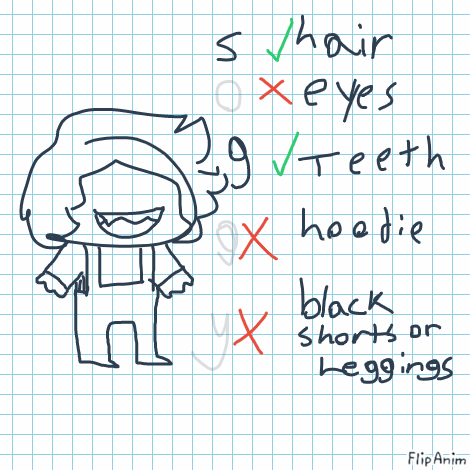 s hair
o eyes
g Teeth
g hoodie
y black
shorts or
Leggings
FlipAnim